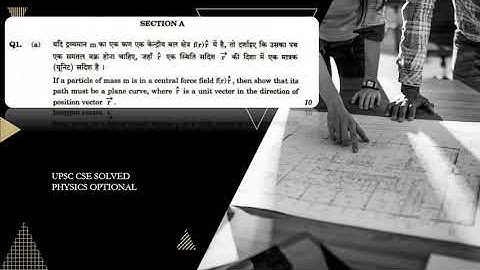 SECTION A
Q1. (a) यदि द्रव्यमान m का एक कण एक केन्द्रीय बल क्षेत्र f(r) r̂ में है, तो दर्शाइए कि उसका पथ
एक समतल वक्र होना चाहिए, जहाँ r̂ एक स्थिति सदिश r⃗ की दिशा में एक मात्रक
(यूनिट) सदिश है ।
If a particle of mass m is in a central force field f(r) r̂, then show that its
path must be a plane curve, where r̂ is a unit vector in the direction of
position vector r⃗. 10
UPSC CSE SOLVED
PHYSICS OPTIONAL